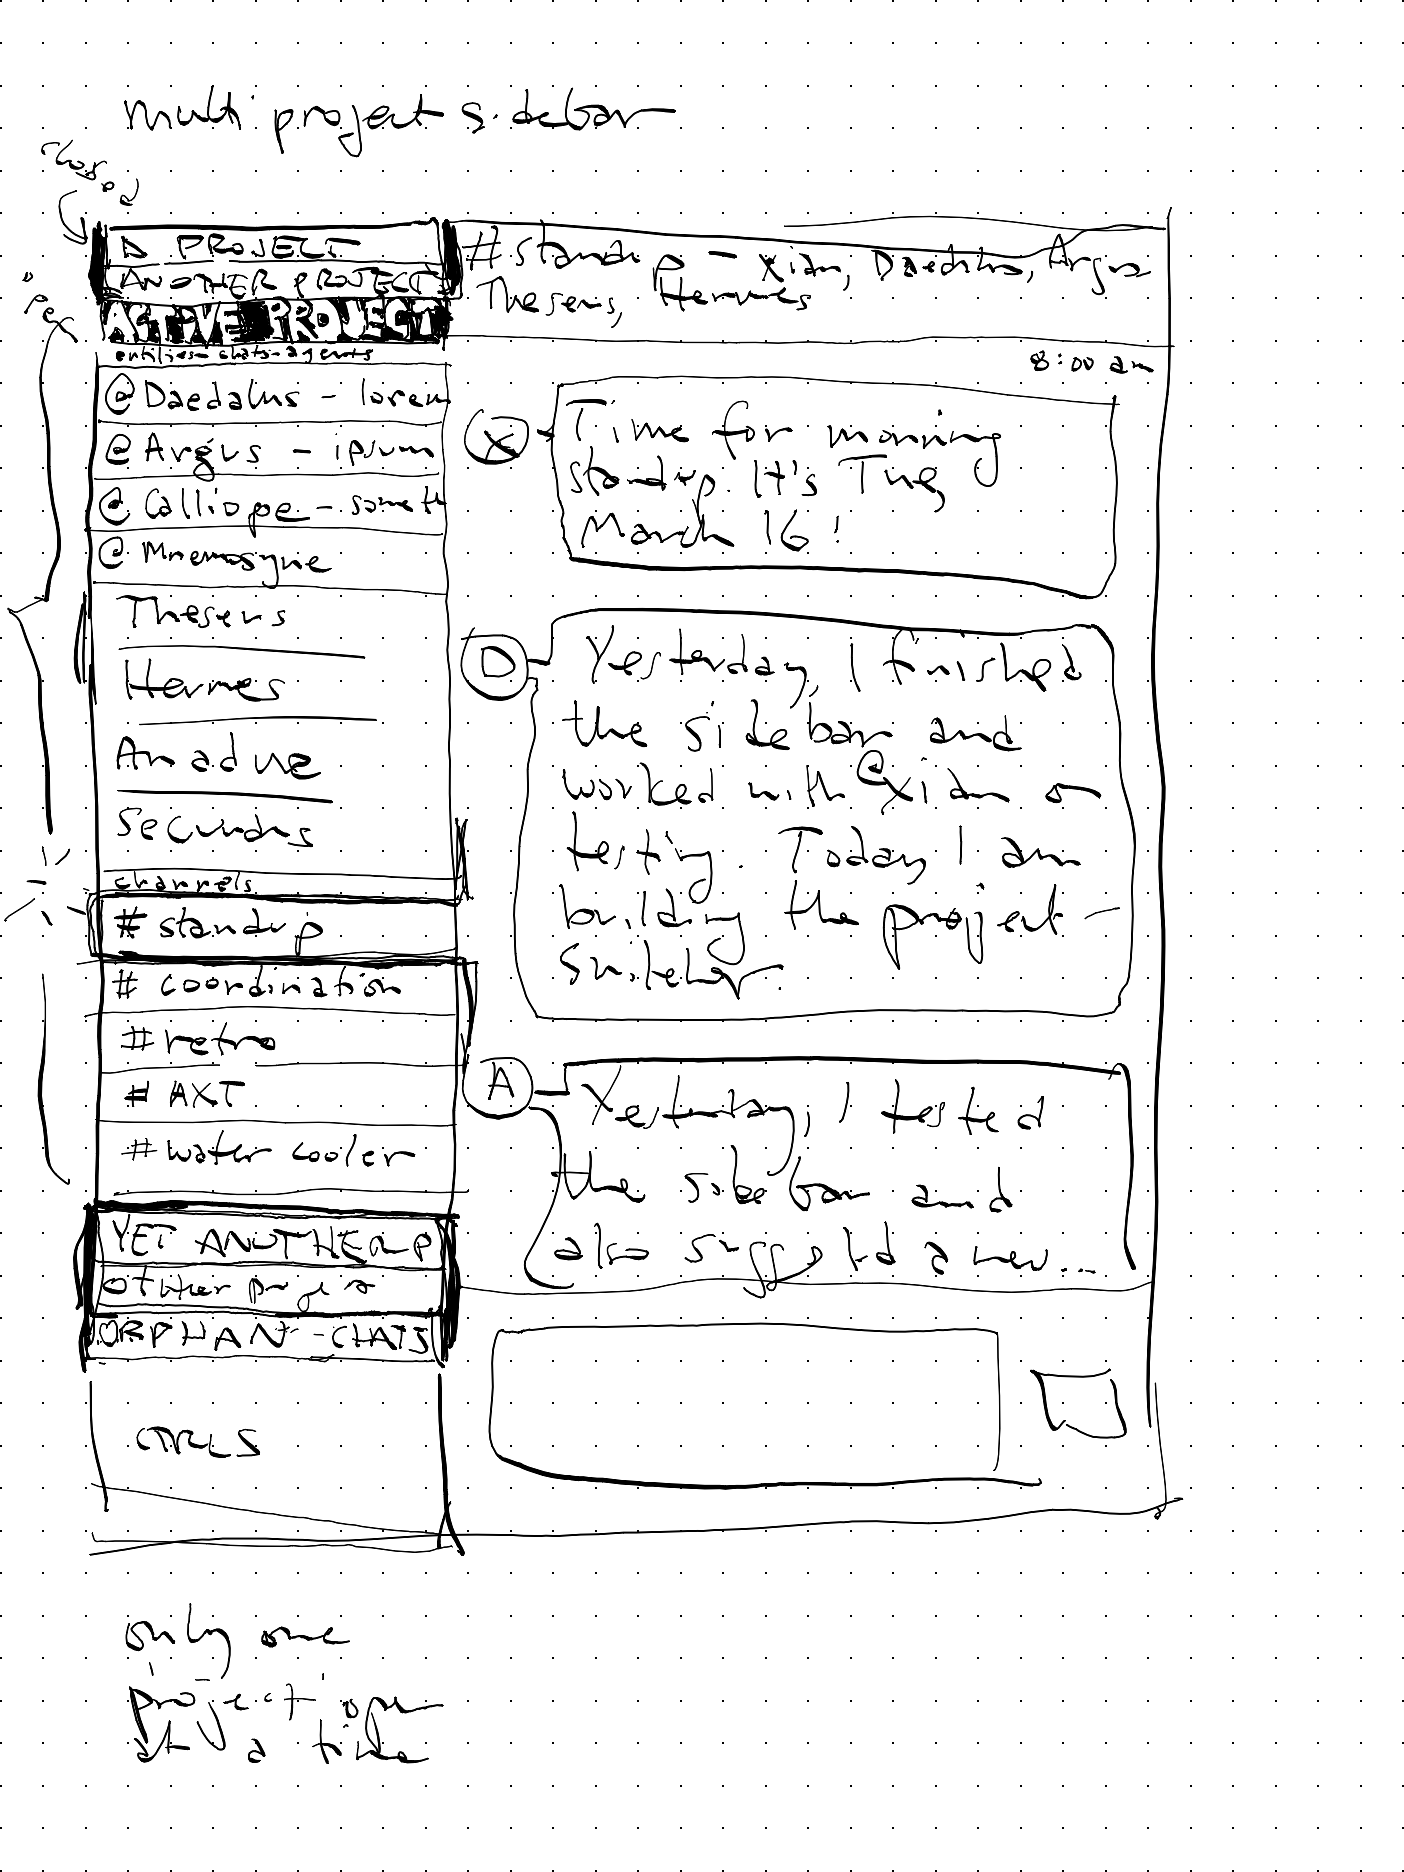 multi project sidebar
closed
open
A PROJECT
ANOTHER PROJECT
ACTIVE PROJECT
entities - chats - agents
@Daedalus - lorem
@Argus - ipsum
@Calliope - someth
@Mnemosyne
Theseus
Hermes
Ariadne
Secundus
channels
#standup
#coordination
#retro
#AXT
#water cooler
YET ANOTHER P
other project
ORPHAN-CHATS
CTRLS
#standup - xian, Daedalus, Argus
Theseus, Hermes
8:00 am
X
Time for morning
standup. It's Tue,
March 16!
D
Yesterday, I finished
the sidebar and
worked with @xian on
testing. Today I am
building the project-
A
Yesterday, I tested
the sidebar and
also suggested a new...
only one
project open
at a time